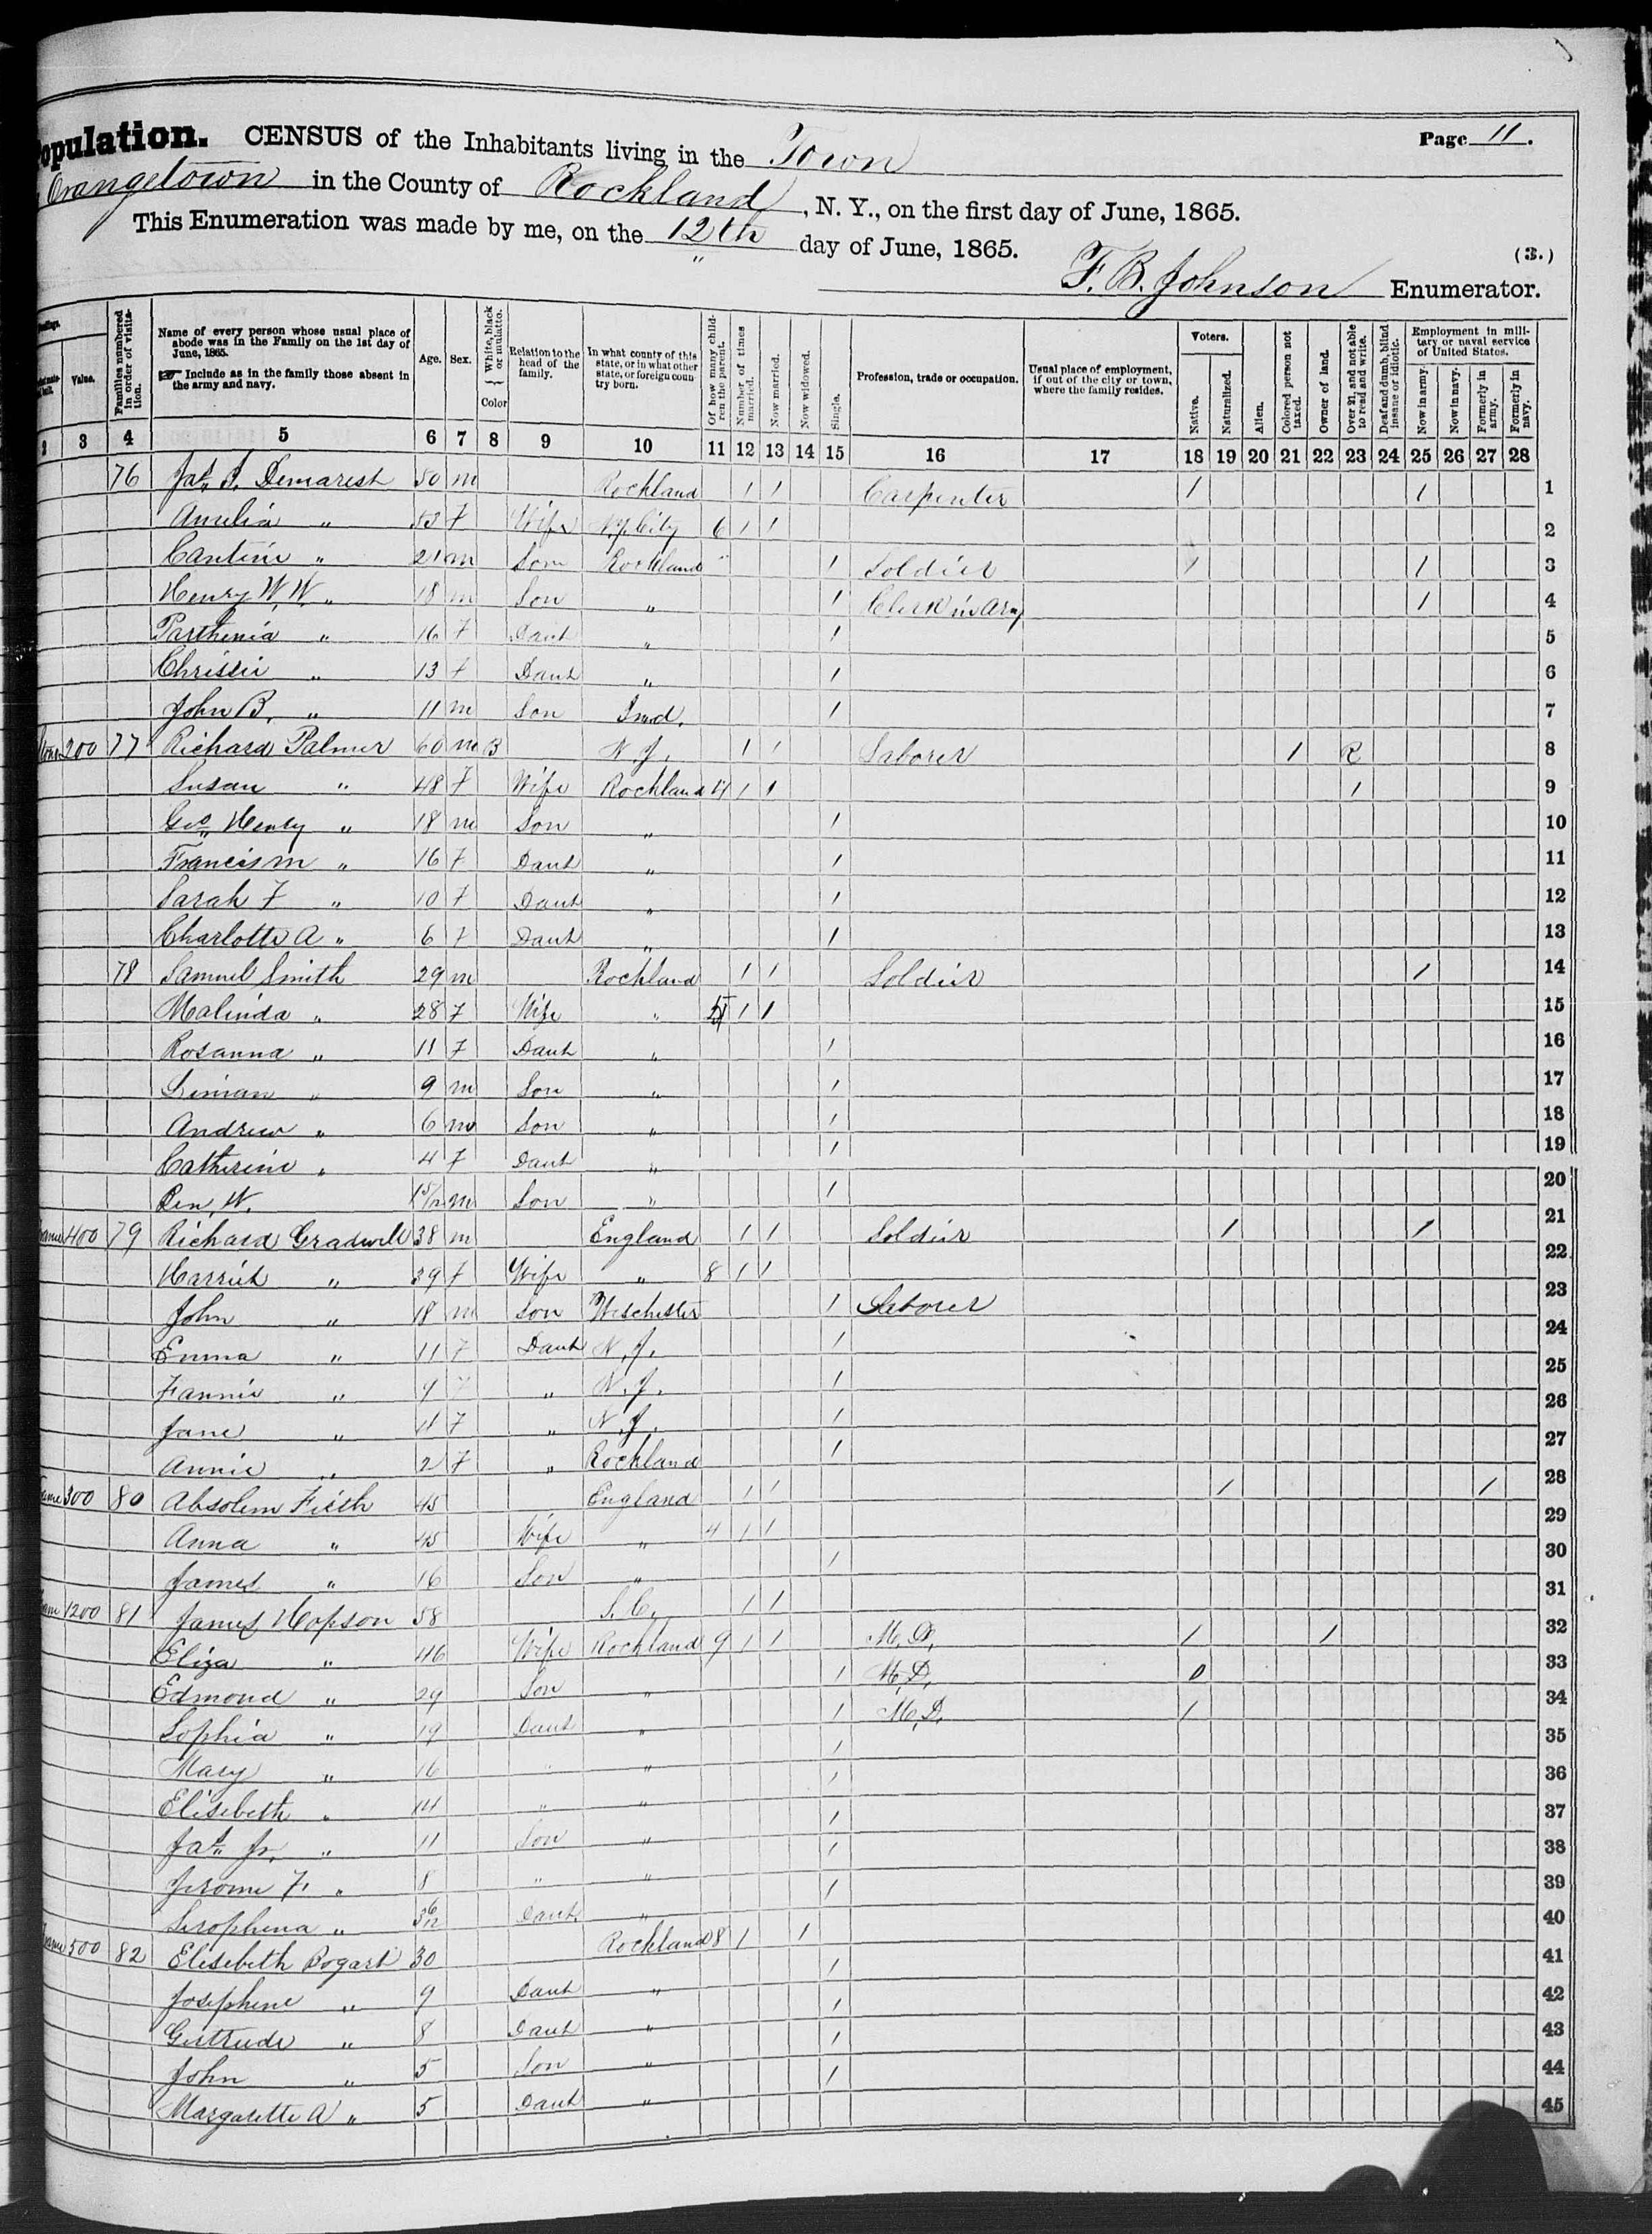 Population. CENSUS of the Inhabitants living in the Town Page 11.
Orangetown in the County of Rockland, N. Y., on the first day of June, 1865.
This Enumeration was made by me, on the 12th day of June, 1865.
(3.)
F. B. Johnson Enumerator.
Value. Families numbered in order of visitation. Name of every person whose usual place of abode was in the Family on the 1st day of June, 1865. Include as in the family those absent in the army and navy. Age. Sex. White, black or mulatto. Color Relation to the head of the family. In what county of this state, or in what other state, or foreign country born. Of how many children the parent. Number of times married. Now married. Now widowed. Single. Profession, trade or occupation. Usual place of employment, if out of the city or town, where the family resides. Voters. Native. Naturalized. Alien. Colored person not taxed. Owner of land. Over 21, and not able to read and write. Deaf and dumb, blind insane or idiotic. Employment in military or naval service of United States. Now in army. Now in navy. Formerly in army. Formerly in navy.
2 3 4 5 6 7 8 9 10 11 12 13 14 15 16 17 18 19 20 21 22 23 24 25 26 27 28
76 Jas. Demarest 50 m Rockland 1 1 Carpenter 1 1 1
Amelia " 53 f Wife N.Y. City 6 1 1 2
Cantine " 21 m Son Rockland 1 Soldier 1 1 3
Henry W. W. " 18 m Son " 1 Clerk in Army 1 4
Parthenia " 16 f Daut " 1 5
Chrissie " 13 f Daut " 1 6
John B. " 11 m Son Ind. 1 7
200 77 Richard Palmer 60 m B N. J. 1 1 Laborer 1 R 8
Susan " 48 f Wife Rockland 4 1 1 1 9
Geo Henry " 18 m Son " 1 10
Francis m " 16 f Daut " 1 11
Sarah F " 10 f Daut " 1 12
Charlotte A " 6 f Daut " 1 13
78 Samuel Smith 29 m Rockland 1 1 Soldier 1 14
Malinda " 28 f Wife " 1 1 15
Rosanna " 11 f Daut " 1 16
9 m Son " 1 17
Andrew " 6 m Son " 1 18
Catherine " 4 f Daut " 1 19
W. m Son " 1 20
400 79 Richard Gradwell 38 m England 1 1 Soldier 1 1 21
Harriet " 39 f Wife " 8 1 1 22
John " 18 m Son Weschester 1 Laborer 23
Emma " 11 f Daut N. J. 1 24
Fannie " f " N. J. 1 25
Jane " 4 f " N. J. 1 26
Annie " 2 f " Rockland 1 27
300 80 Absolem Fieth 45 England 1 1 1 1 28
Anna " 45 Wife " 4 1 1 29
James " 16 Son " 1 30
1200 81 James Hopson 58 S. C. 1 1 M. D. 1 1 31
Eliza " 46 Wife Rockland 9 1 1 M. D. 32
Edmond " 29 Son " 1 M. D. 1 33
Sophia " 19 Daut " 1 34
Mary " 16 " " 1 35
Elisebeth " 14 " " 1 36
Jas. Jr. " 11 Son " 1 37
Jerome F. " 8 " " 1 38
Serophena " Daut. " 1 39
500 82 Elisebeth Bogart 30 Rockland 8 1 1 40
Josephene " 9 Daut " 1 41
Gertrude " 8 Daut " 1 42
John " 5 Son " 1 43
Margarette A " 5 Daut " 1 44
45